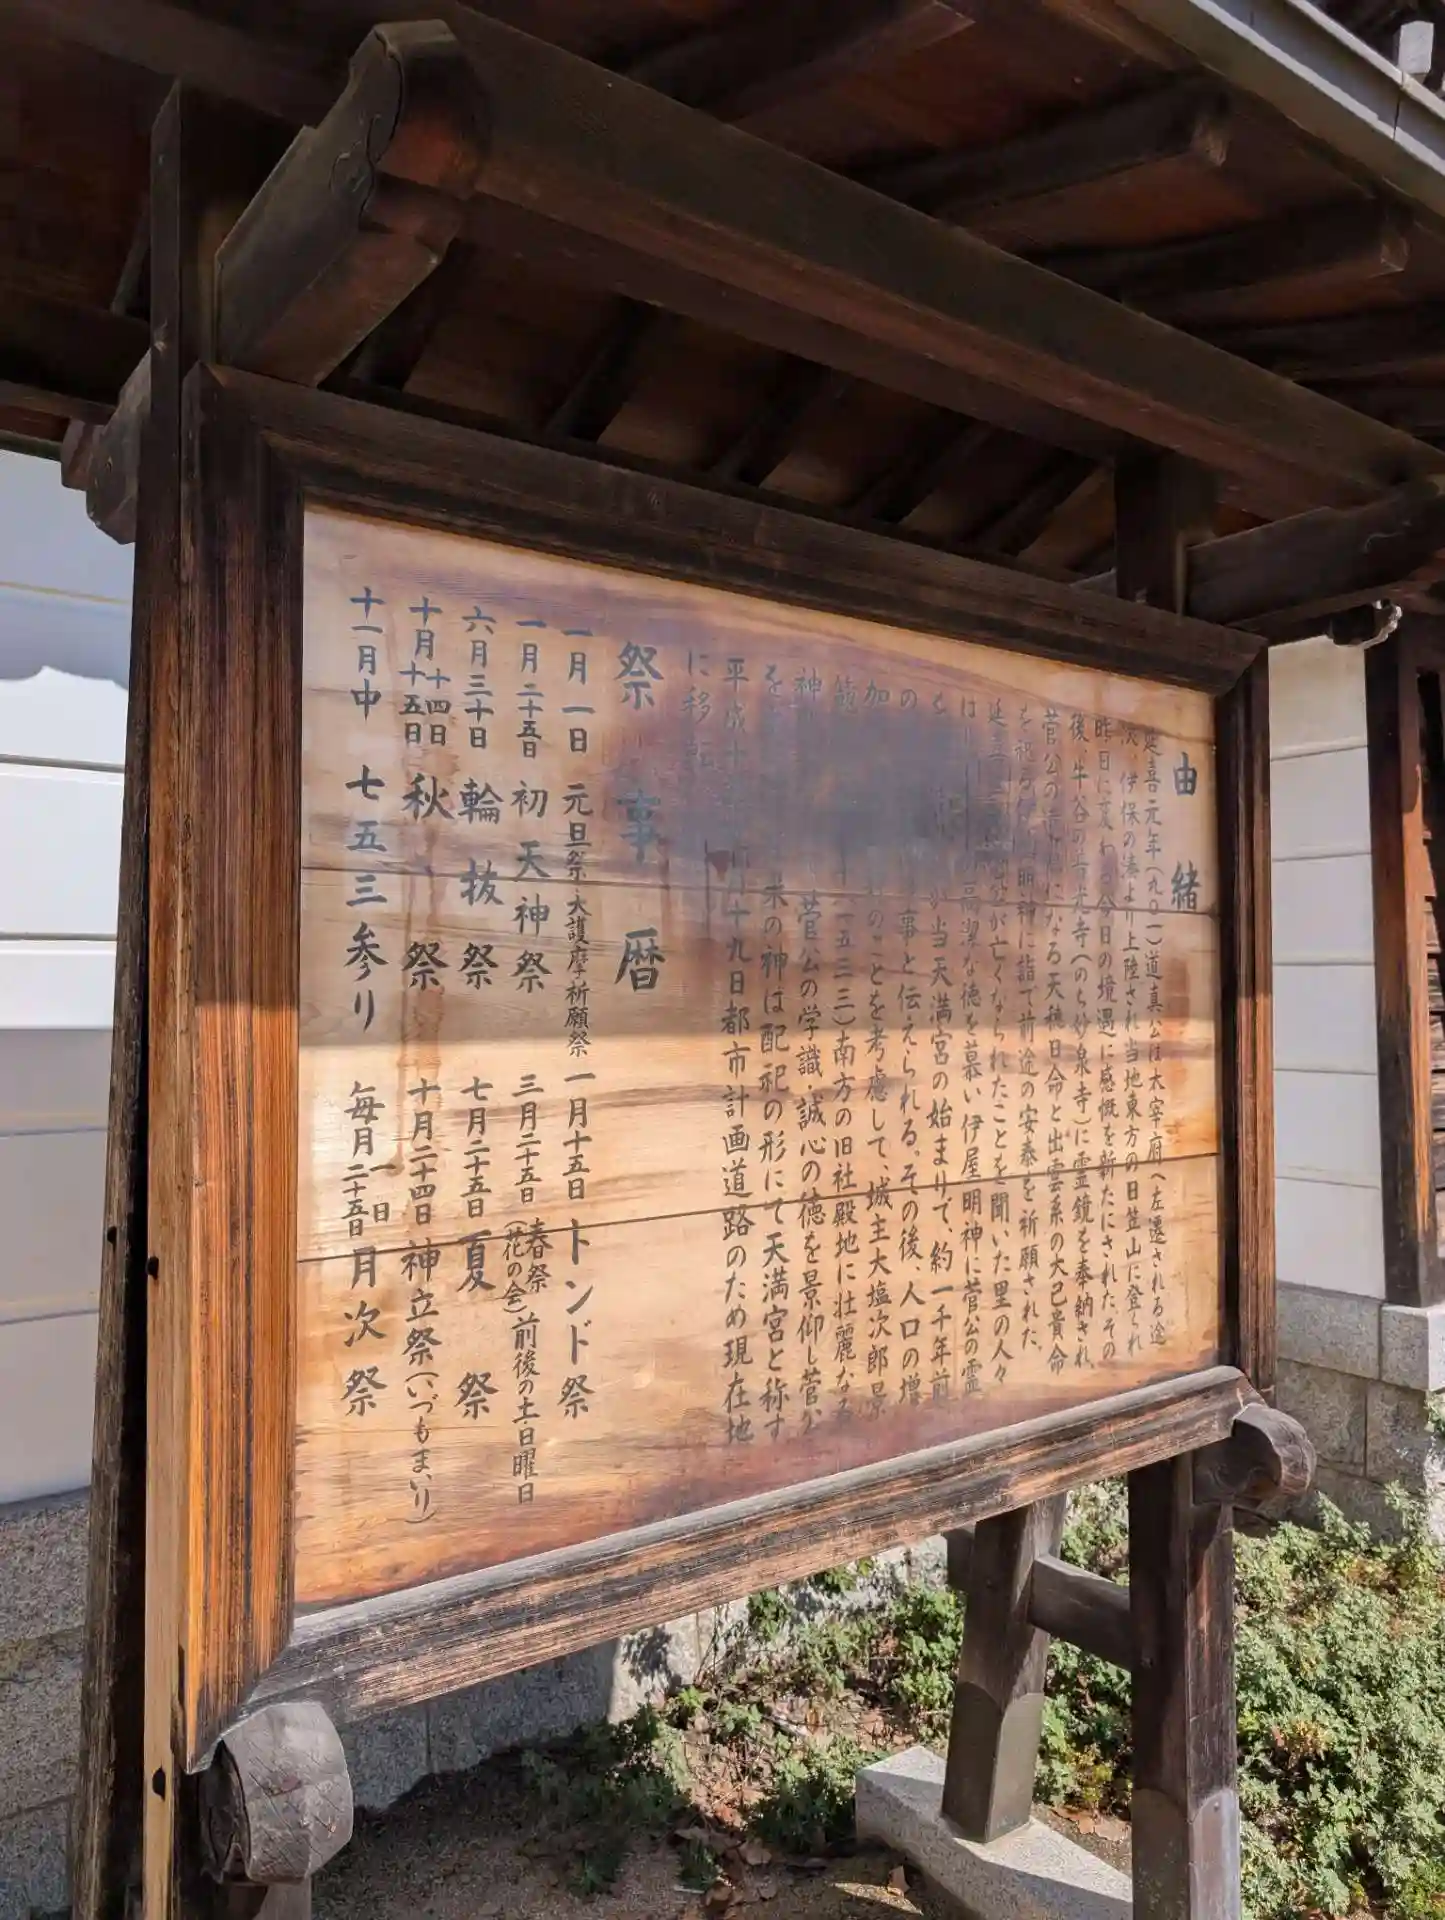 由緒
延喜元年(九〇一)道真公は太宰府へ左遷される途
伊保の湊より上陸され当地東方の日笠山に登られ
昨日に変わる今日の境遇に感慨を新たにされた。その
後、牛谷の (のち妙泉寺)に霊鏡を奉納され、
菅公の になる天穂日命と出雲系の大己貴命
を祀る 明神に詣で前途の安泰を祈願された。
延喜 が亡くなられたことを聞いた里の人々
は 高潔な徳を慕い伊屋明神に菅公の霊
当天満宮の始まりで、約一千年前
の 事と伝えられる。その後、人口の増
加 のことを考慮して、城主大塩次郎景
範 一五三三)南方の旧社殿地に壮麗なる
神 菅公の学識・誠心の徳を景仰し菅公
を 来の神は配祀の形にて天満宮と称す
平成十 月十九日都市計画道路のため現在地
に移転
祭事暦
一月一日 元旦祭・大護摩祈願祭 一月十五日 トンド祭
一月二十五日 初天神祭 三月二十五日 春祭(花の会)前後の土・日曜日
六月三十日 輪抜祭 七月二十五日 夏祭
十月十四日十五日 秋祭 十月二十四日 神立祭(いづもまいり)
十一月中 七五三参り 毎月一日二十五日 月次祭